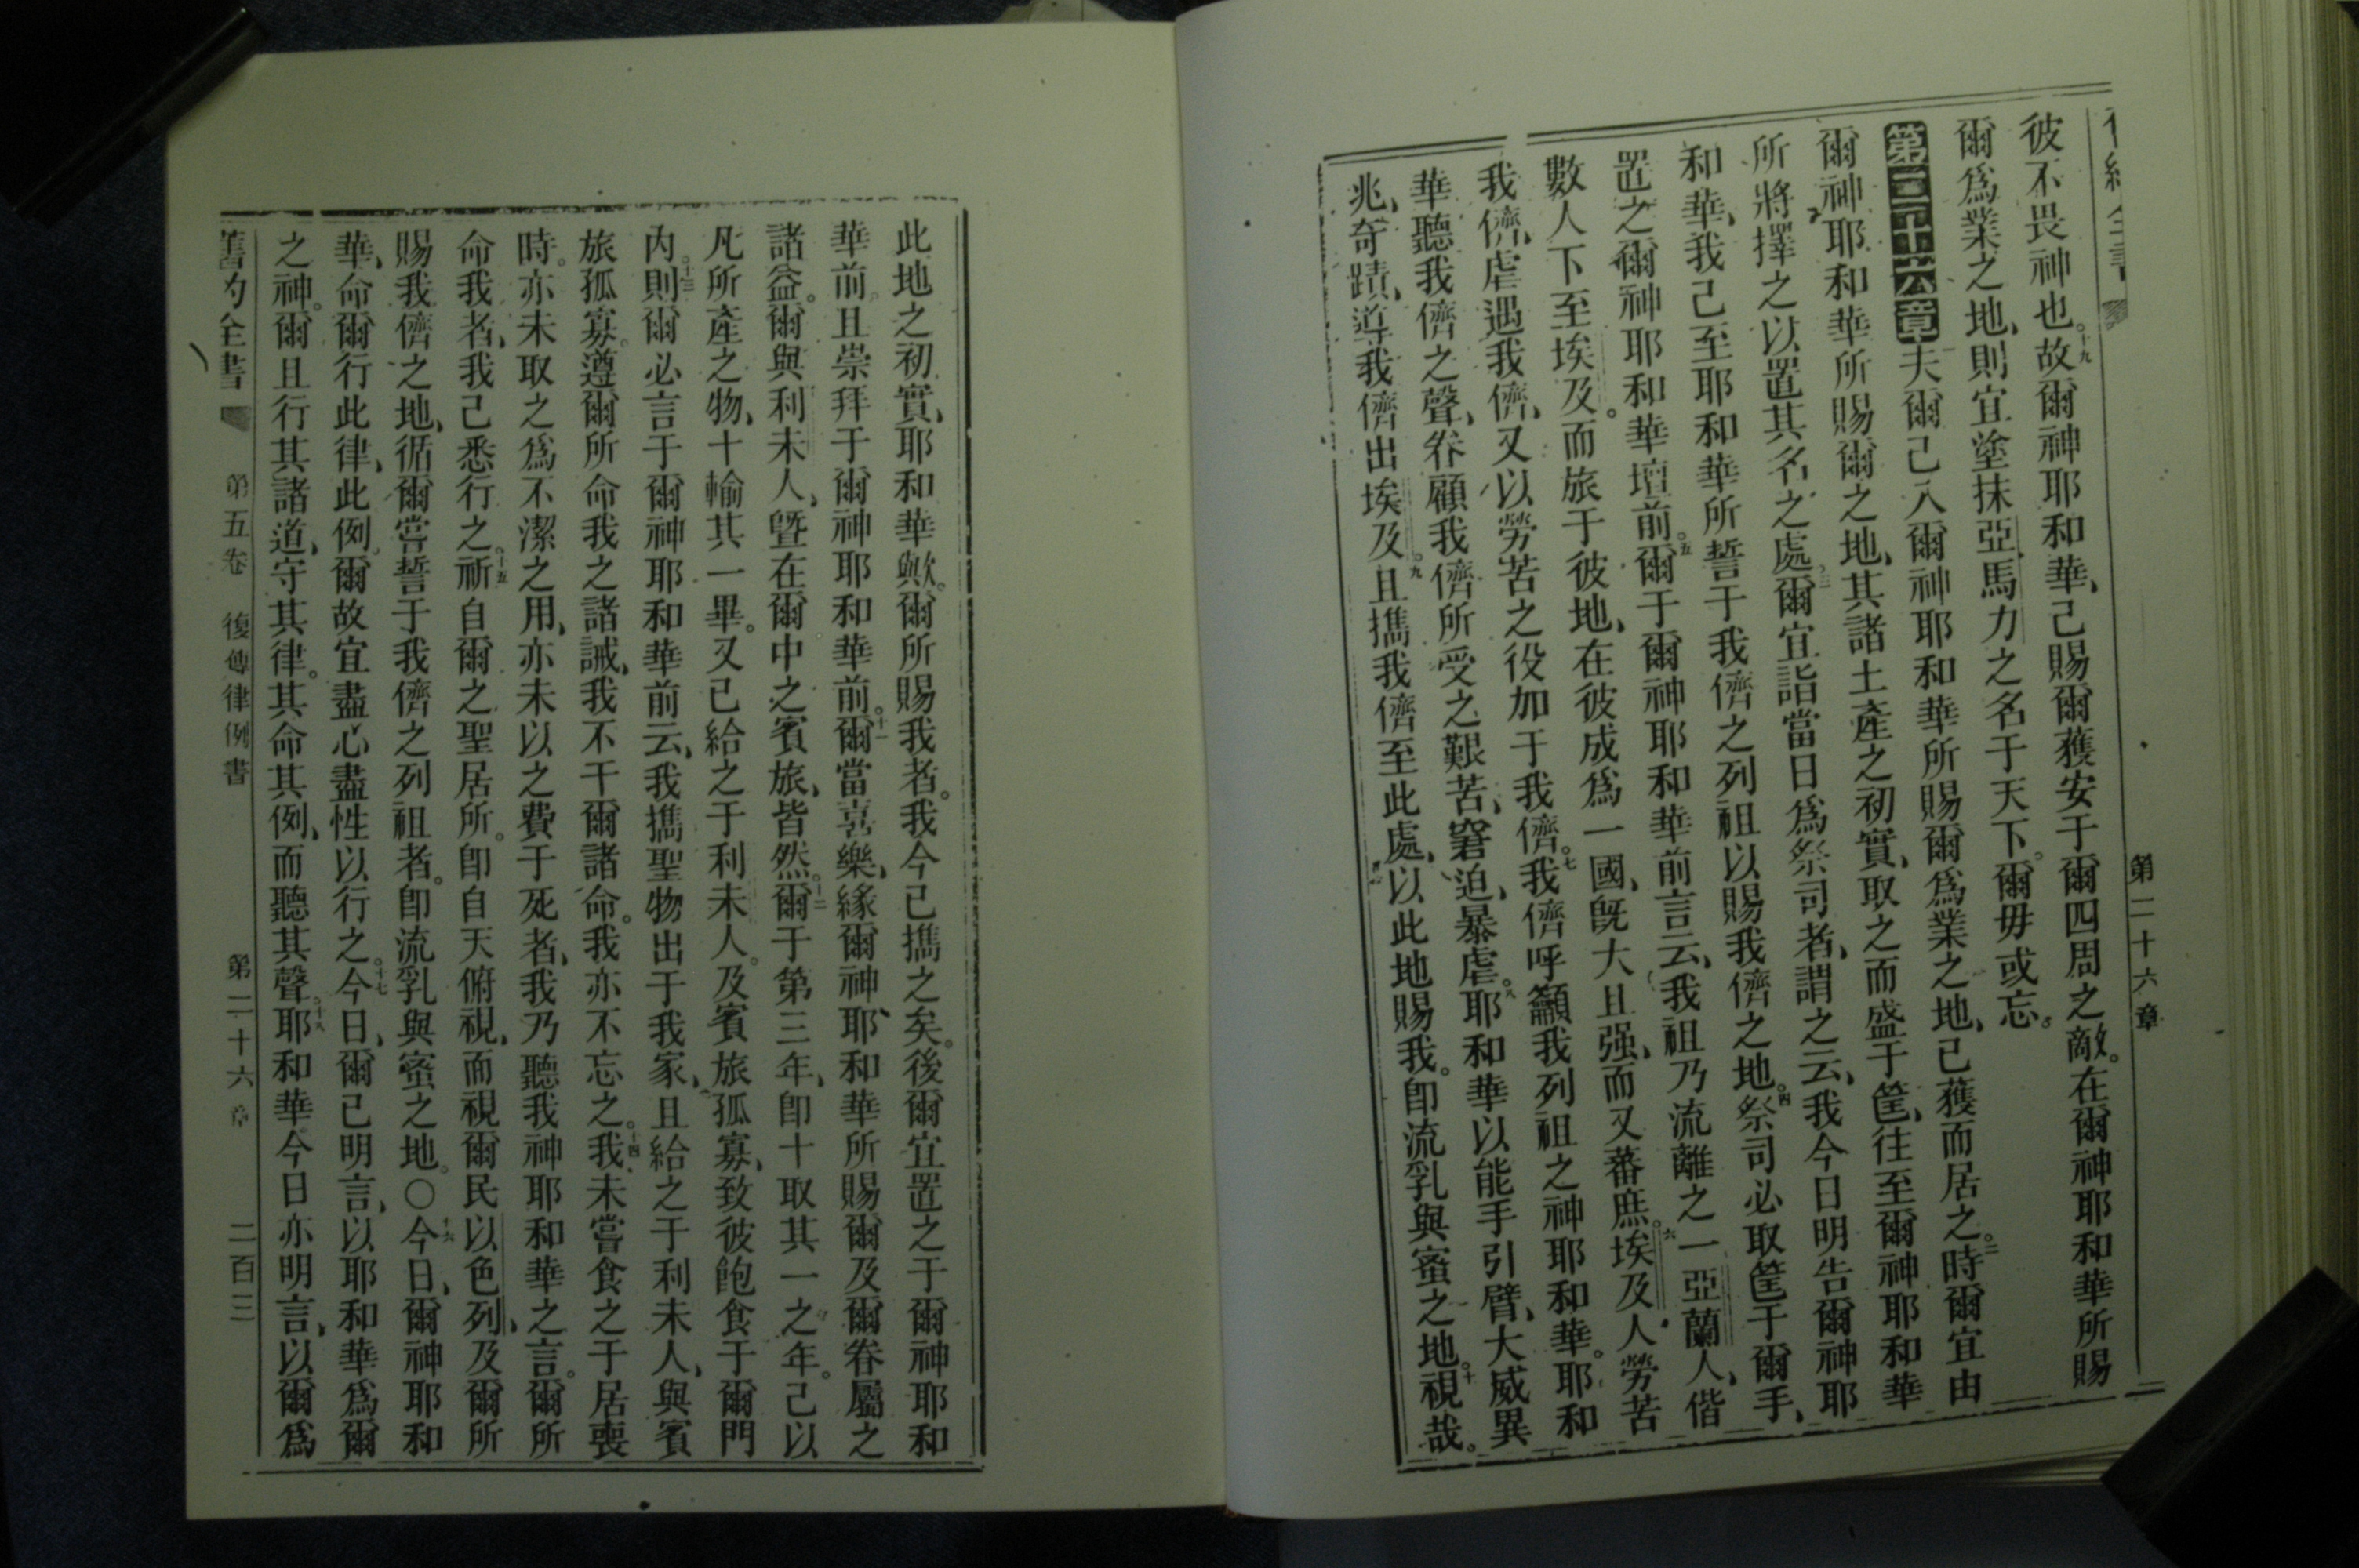 第二十六章
彼不畏神也。十九故爾神耶和華、己賜爾獲安于爾四周之敵。在爾神耶和華所賜
爾爲業之地、則宜塗抹亞馬力之名于天下。爾毋或忘。
第二十六章夫爾己入爾神耶和華所賜爾爲業之地、己獲而居之。二時爾宜由
爾神耶和華所賜爾之地、其諸土產之初實、取之而盛于筐、往至爾神耶和華
所將擇之以置其名之處。三爾宜詣當日爲祭司者、謂之云、我今日明告爾神耶
和華、我己至耶和華所誓于我儕之列祖以賜我儕之地。四祭司必取筐于爾手、
置之爾神耶和華壇前。五爾于爾神耶和華前言云、我祖乃流離之一亞蘭人、偕
數人下至埃及。而旅于彼地、在彼成爲一國、旣大且强、而又蕃庶。六埃及人勞苦
我儕、虐遇我儕、又以勞苦之役加于我儕。七我儕呼籲我列祖之神耶和華。耶和
華聽我儕之聲、眷顧我儕所受之艱苦、窘迫、暴虐。八耶和華以能手引臂、大威異
兆、奇蹟、導我儕出埃及。九且攜我儕至此處、以此地賜我。卽流乳與蜜之地。十視哉。
此地之初實、耶和華歟。爾所賜我者。我今己攜之矣。後爾宜置之于爾神耶和
華前。且崇拜于爾神耶和華前。十一爾當喜樂、緣爾神、耶和華所賜爾及爾眷屬之
諸益。爾與利未人、曁在爾中之賓旅、皆然。十二爾于第三年、卽十取其一之年。己以
凡所產之物、十輸其一畢。又已給之于利未人。及賓旅孤寡、致彼飽食于爾門
內。十三則爾必言于爾神耶和華前云、我攜聖物出于我家、且給之于利未人、與賓
旅孤寡。遵爾所命我之諸誡、我不干爾諸命。我亦不忘之。十四我未嘗食之于居喪
時。亦未取之爲不潔之用、亦未以之費于死者、我乃聽我神耶和華之言。爾所
命我者、我己悉行之。十五祈自爾之聖居所。卽自天俯視、而視爾民以色列、及爾所
賜我儕之地、循爾嘗誓于我儕之列祖者。卽流乳與蜜之地。○十六今日、爾神耶和
華、命爾行此律、此例。爾故宜盡心盡性以行之。十七今日、爾已明言、以耶和華爲爾
之神。爾且行其諸道、守其律。其命其例、而聽其聲。十八耶和華今日亦明言、以爾爲
舊約全書 第五卷 復傳律例書 第二十六章 二百三